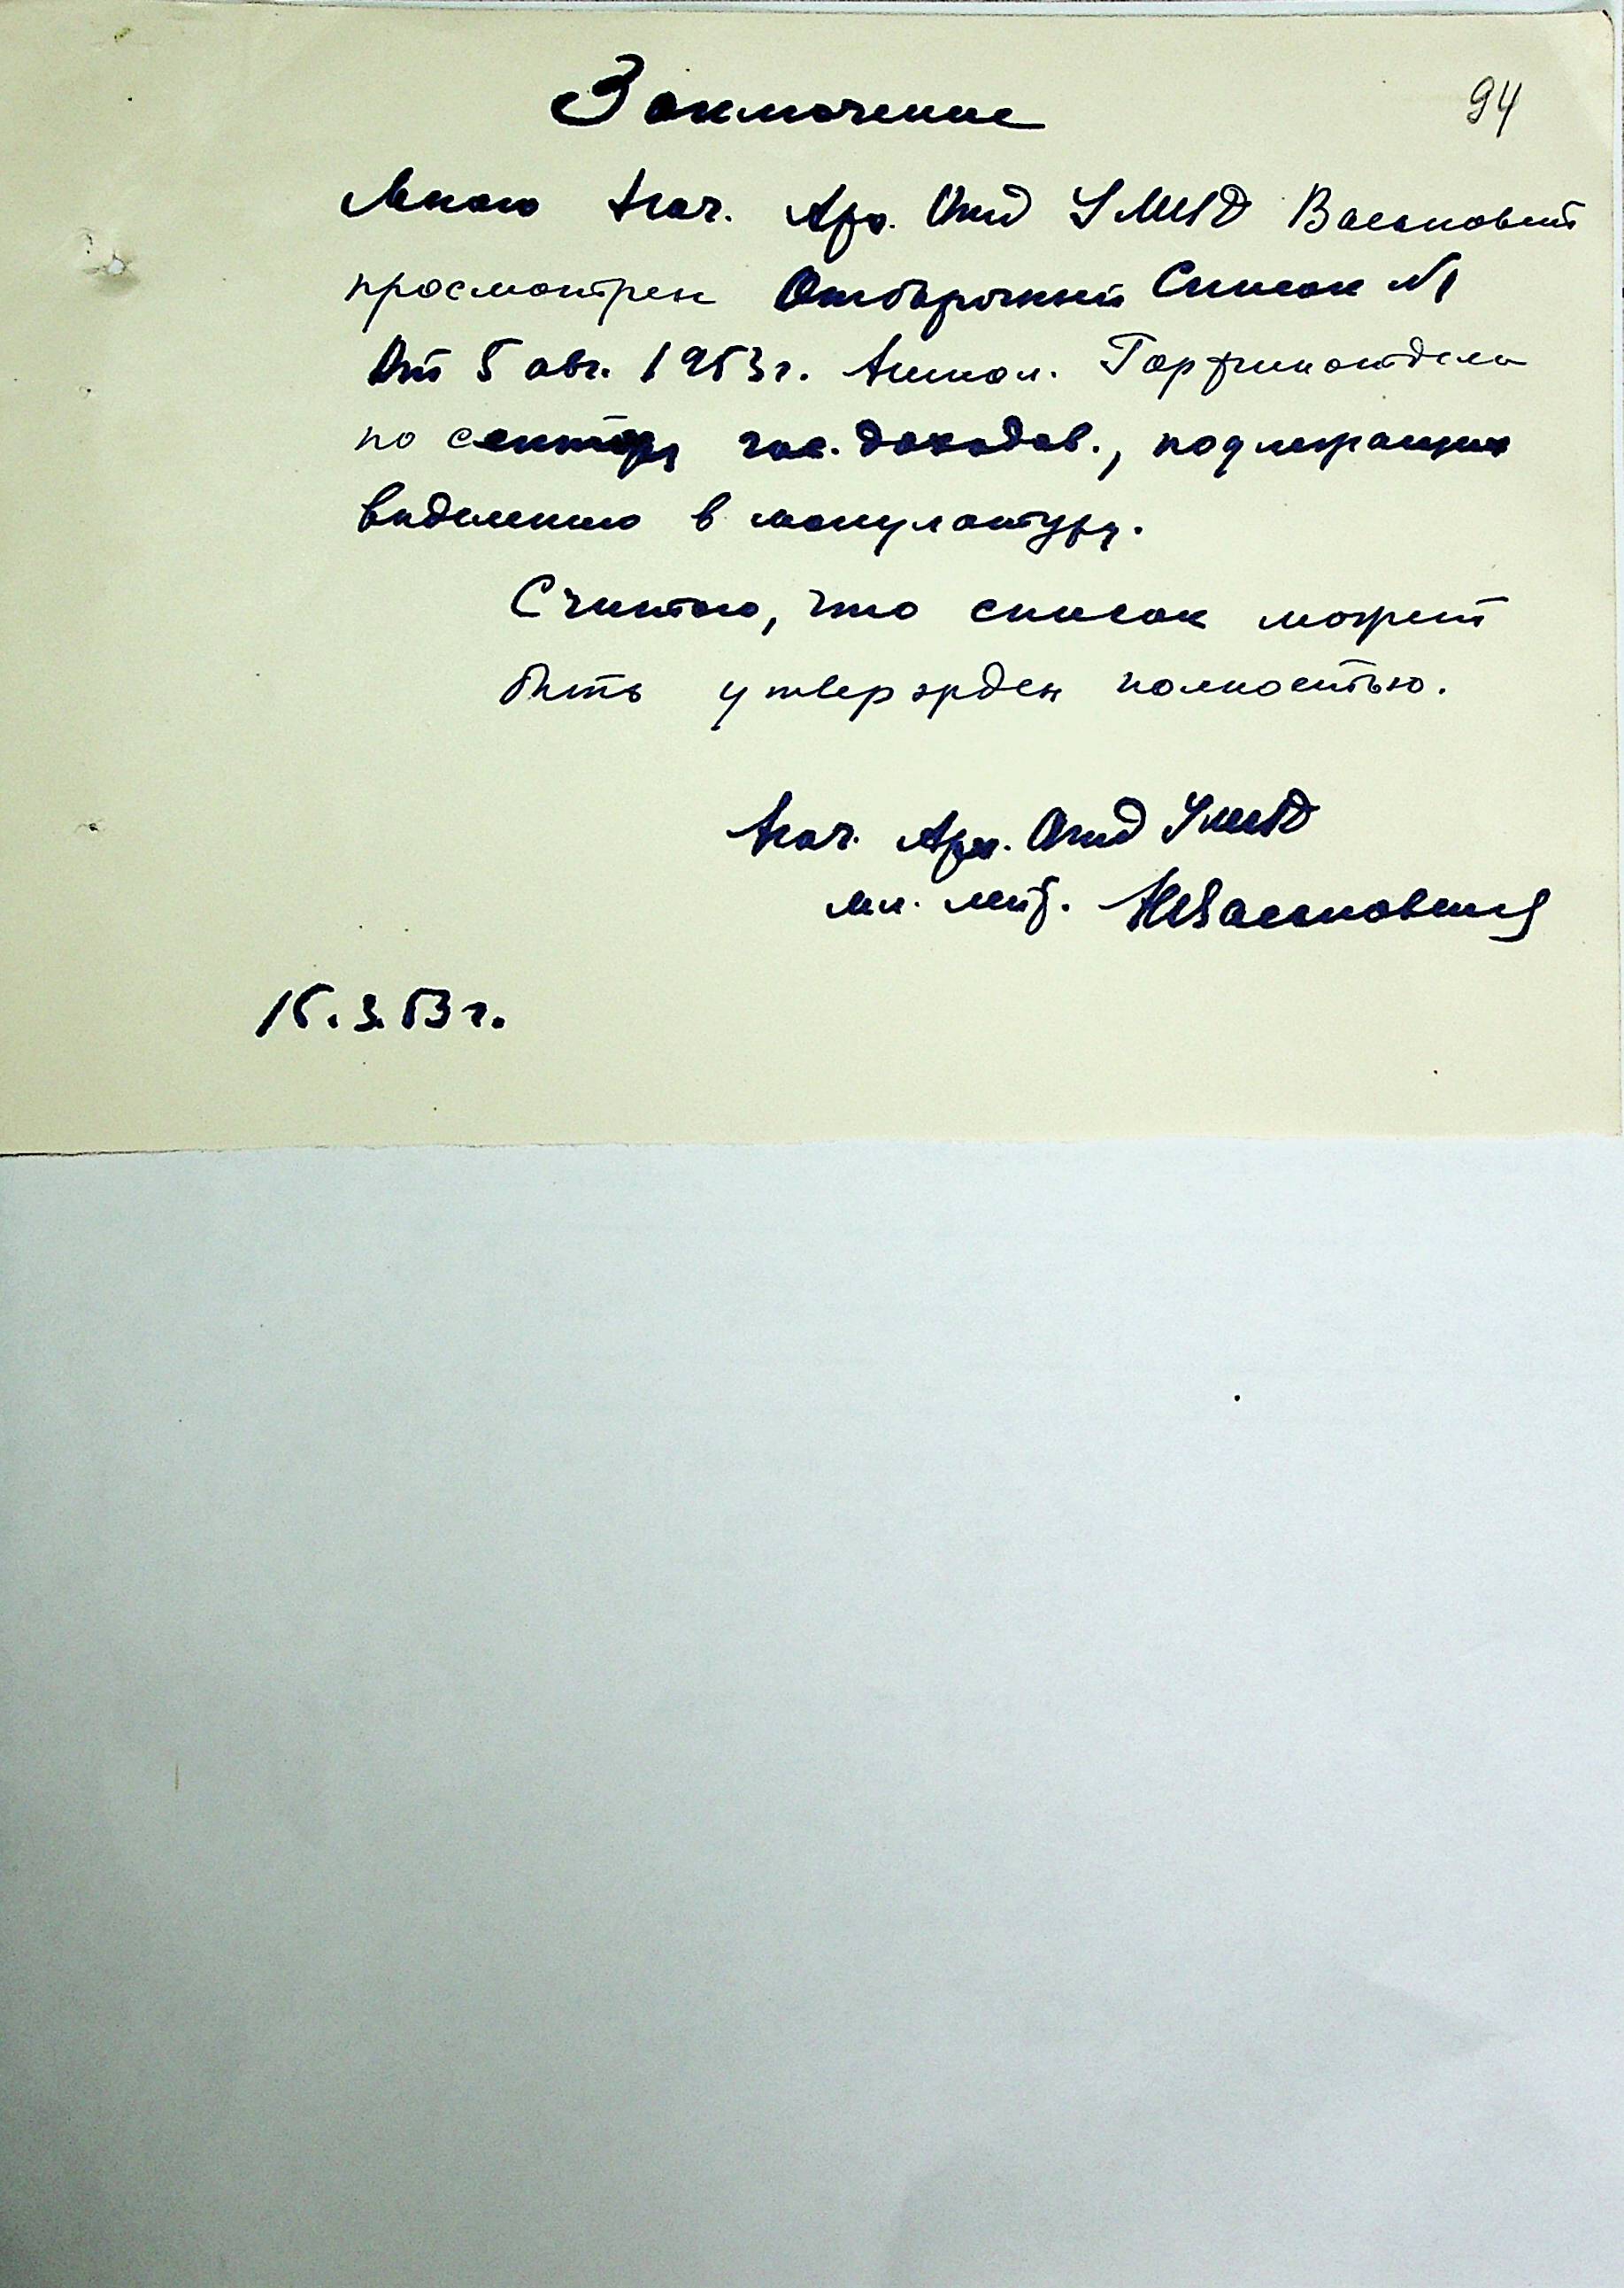 94
Заключение
Мною Нач. Арх. Отд УМВД Васьковский
просмотрен Отборочный Список №1
От 5 авг. 1953г. Горфинотдела
по сектору гос. доходов., подлежащих
выделению в макулатуру.
Считаю, что список может
быть утвержден полностью.
Нач. Арх. Отд УМВД
мл. лейт.